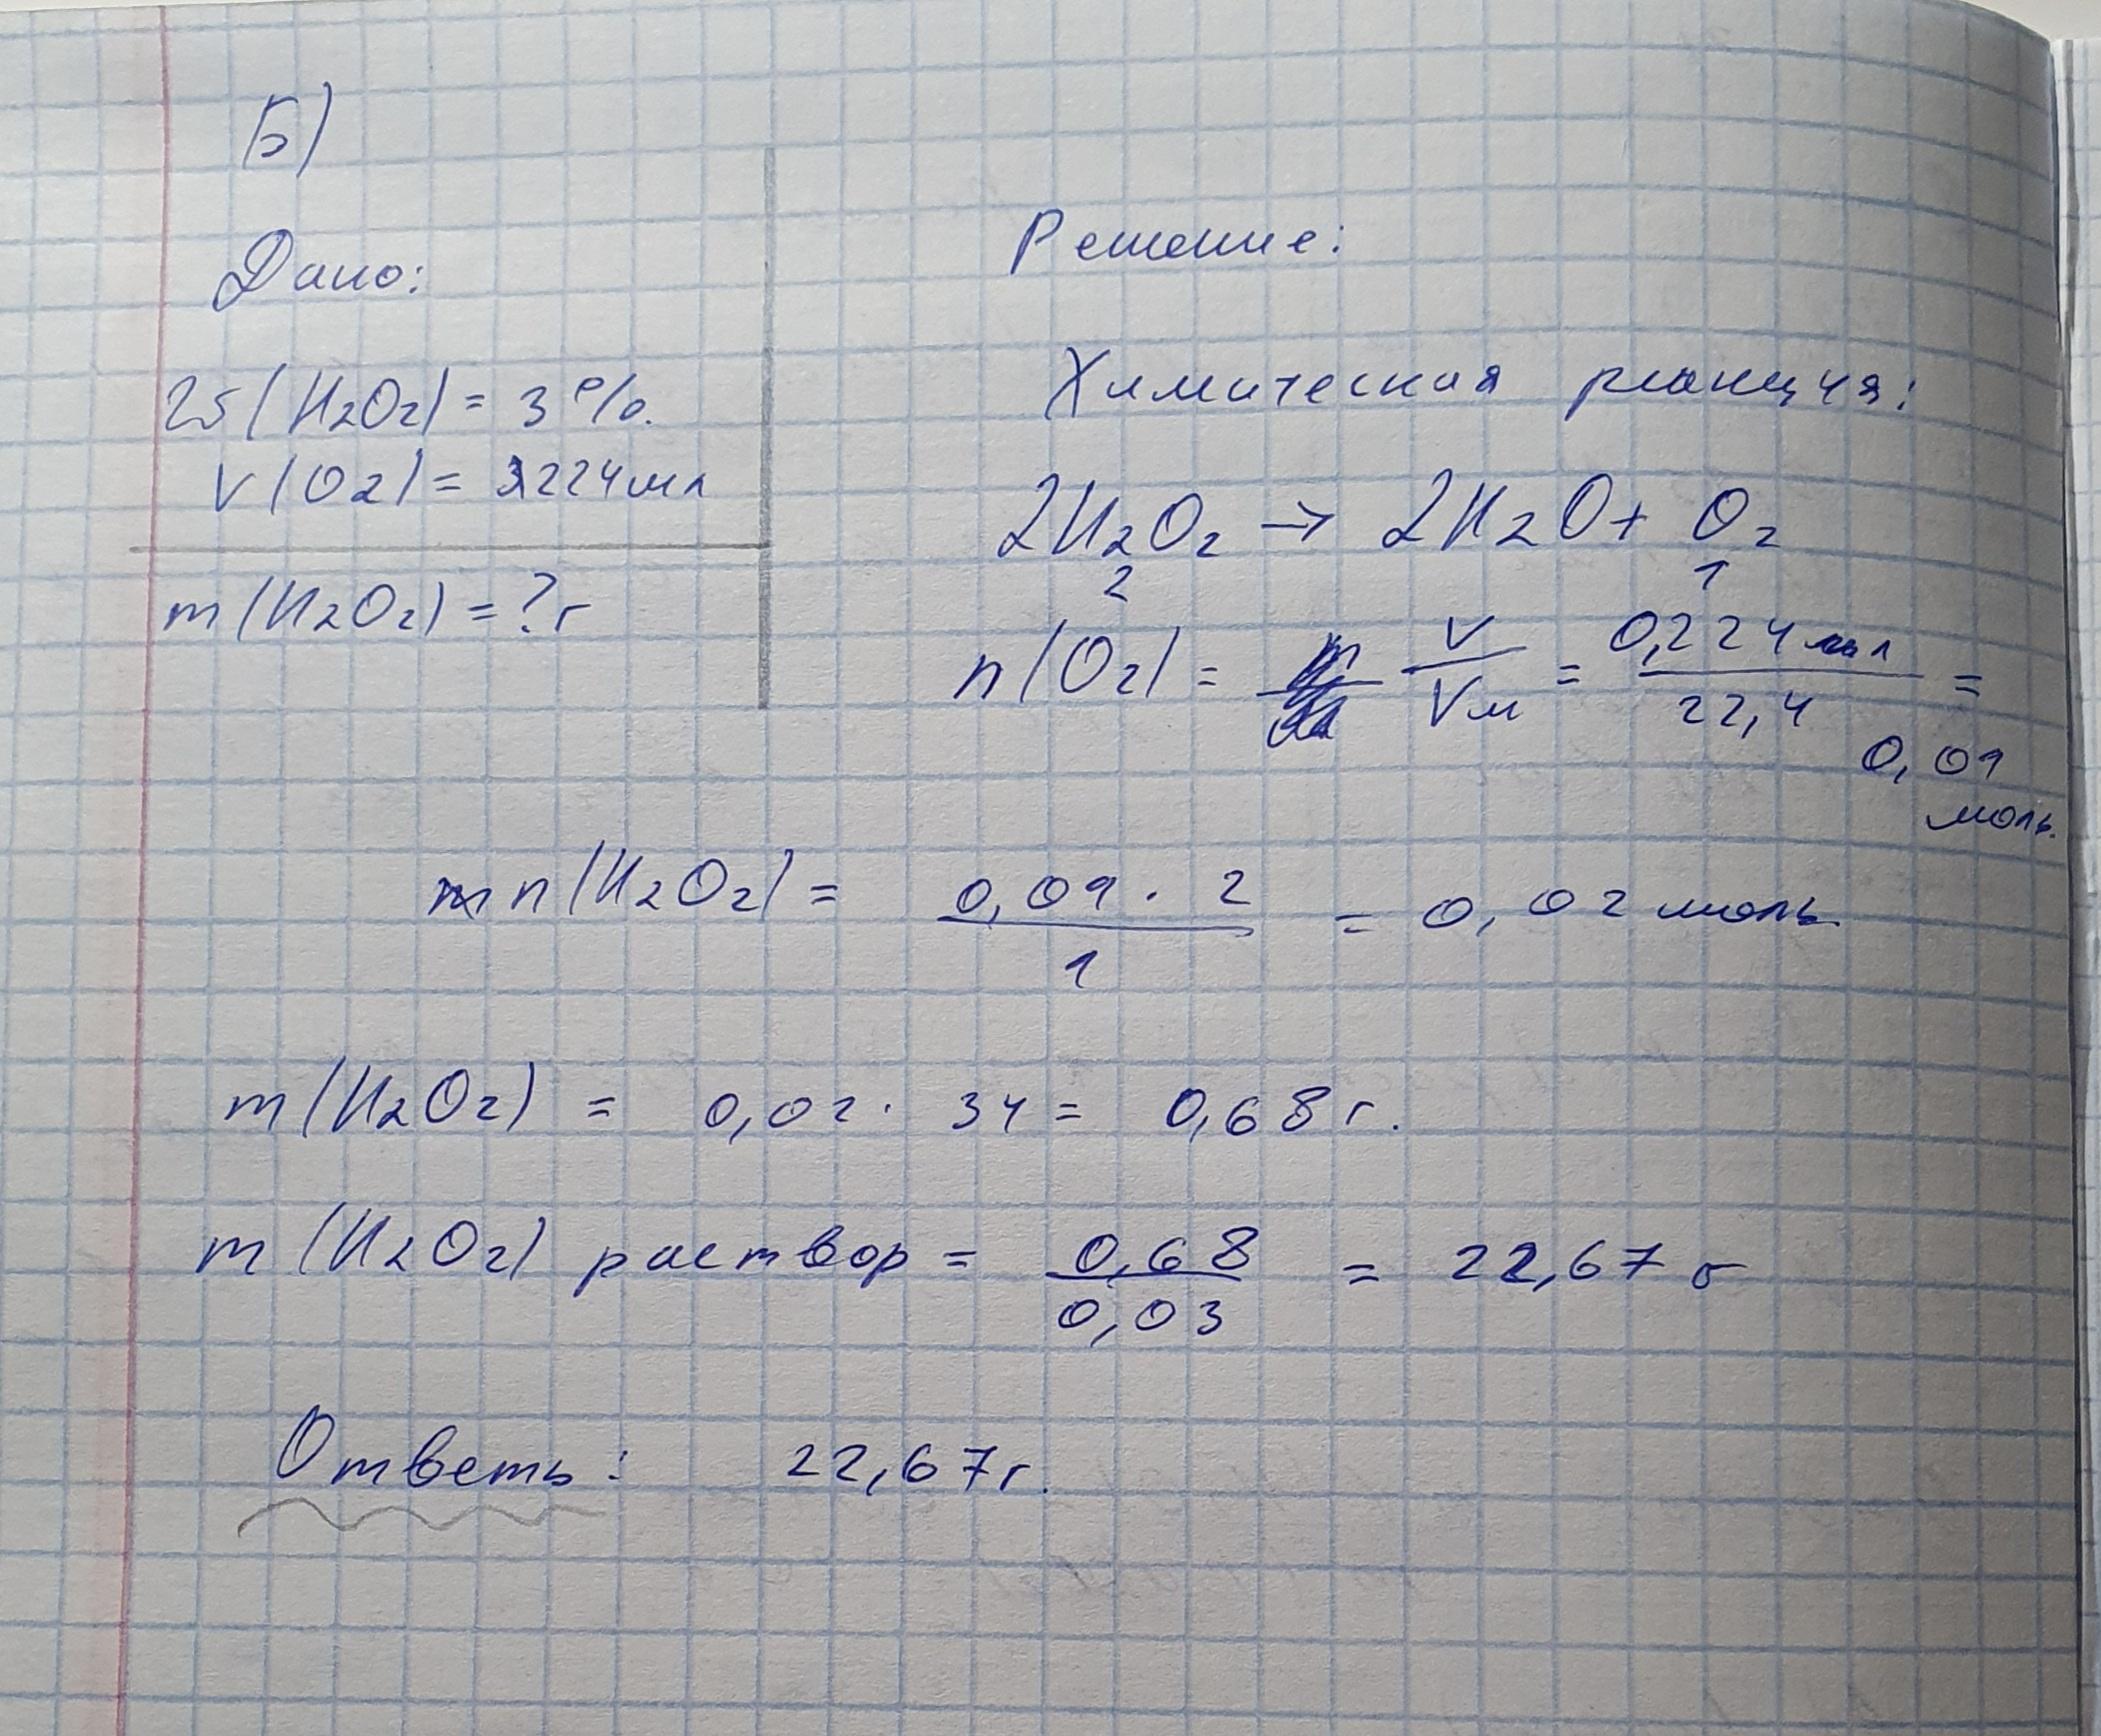 Б)
Дано:
W(H2O2) = 3%.
V(O2) = 224мл
m(H2O2) = ? г
Решение:
Химическая реакция:
2H2O2 → 2H2O + O2
2 1
n(O2) = V/Vм = 0,224 л/22,4 = 0,01 моль.
n(H2O2) = 0,01 · 2/1 = 0,02 моль
m(H2O2) = 0,02 · 34 = 0,68 г.
m(H2O2) раствор = 0,68/0,03 = 22,67 г
Ответь: 22,67г.